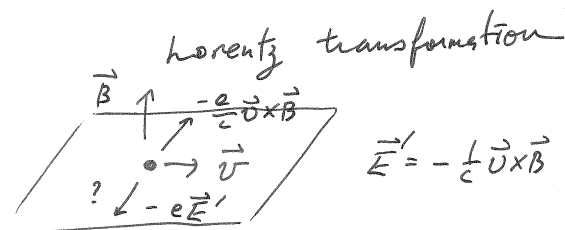 Lorentz transformation
B⃗
-e/c v⃗×B⃗
v⃗
E⃗′ = - 1/c v⃗×B⃗
? - eE⃗′